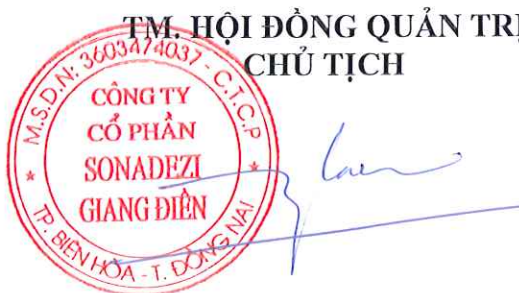 TM. HỘI ĐỒNG QUẢN TRỊ
CHỦ TỊCH
M.S.D.N: 3603474037 - C.T.C.P
CÔNG TY
CỔ PHẦN
SONADEZI
GIANG ĐIỀN
TP. BIÊN HÒA - T. ĐỒNG NAI